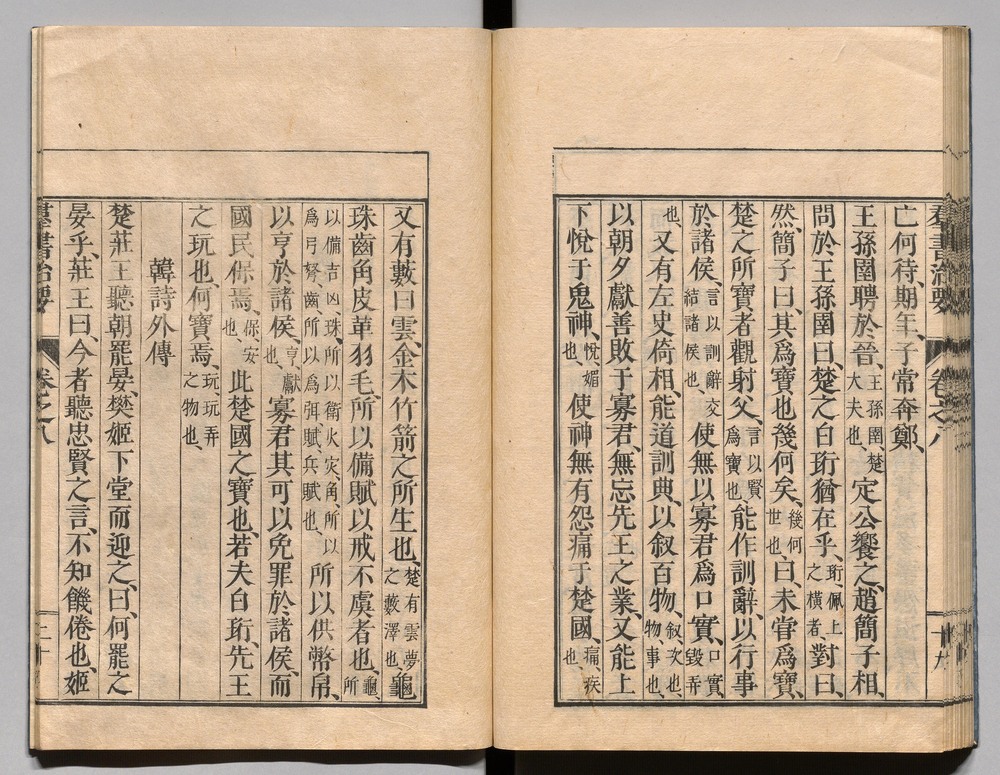 羣書治要 卷之八 十九
亡何待、期年、子常奔鄭、
王孫圉聘於晉、王孫圉楚大夫也、定公饗之、趙簡子相、
問於王孫圉曰、楚之白珩猶在乎、珩、佩上之橫者、對曰、
然、簡子曰、其爲寶也幾何矣、幾何世也、曰、未嘗爲寶、
楚之所寶者、觀射父、言以賢爲寶也、能作訓辭、以行事
於諸侯、言以訓辭交結諸侯也、使無以寡君爲口實、口實毀弄
也、又有左史倚相、能道訓典、以叙百物、叙、次也、物、事也、
以朝夕獻善敗于寡君、無忘先王之業、又能上
下悅于鬼神、悅、媚也、使神無有怨痛于楚國、痛、疾也、
又有藪曰雲、金木竹箭之所生也、楚有雲夢之藪澤也、龜
珠齒角皮革羽毛、所以備賦以戒不虞者也、龜、所
以備吉凶、珠、所以衛火灾、角、所以爲弓弩、齒、所以爲弭、賦、兵賦也、所以供幣帛、
以亨於諸侯、亨、獻也、寡君其可以免罪於諸侯、而
國民保焉、保、安也、此楚國之寶也、若夫白珩、先王
之玩也、何寶焉、玩、玩弄之物也、
韓詩外傳
楚莊王聽朝罷晏、樊姬下堂而迎之、曰、何罷之
晏乎、莊王曰、今者聽忠賢之言、不知饑倦也、姬
羣書治要 卷之八 二十